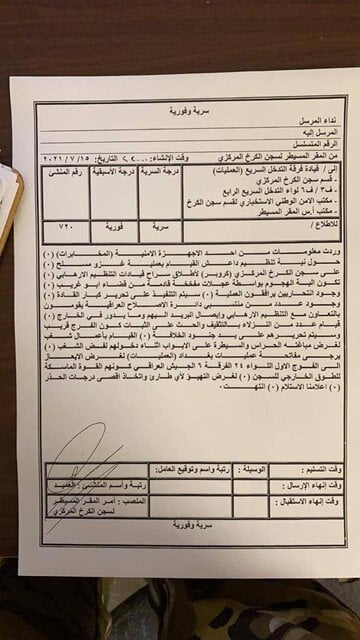 سرية وفورية
نداء المرسل
المرسل إليه
الرقم المتسلسل
من المقر المسيطر لسجن الكرخ المركزي
وقت الإنشاء: ٢٤٠٠
التاريخ: ٢٠٢١/٧/١٥
إلى / قيادة فرقة التدخل السريع (العمليات)
- قسم سجن الكرخ المركزي
- ف٣/ف٦ لواء التدخل السريع الرابع
- مكتب الامن الوطني الاستخباري لقسم سجن الكرخ
- مكتب أ.س المقر المسيطر
درجة السرية
درجة الأسبقية
رقم المنشئ
للاطلاع /
سرية
فورية
٧٢٠
وردت معلومات من احد الاجهزة الامنية (المخابرات) (٠)
حول نية تنظيم داعش القيام بعملية غزو مسلح (٠)
على سجن الكرخ المركزي (كروبر) لأطلاق سراح قيادات التنظيم الارهابي (٠)
تكون آلية الهجوم بواسطة عجلات مفخخة قادمة من قضاء ابو غريب (٠)
وجود انتحاريين يرافقون العملية (٠) سيتم التنفيذ على تحرير كبار القادة (٠)
وجود عدد من منتسبي دائرة الاصلاح العراقية يقومون
بالتعاون مع التنظيم الارهابي وإيصال البريد اليهم وما يدور في الخارج (٠)
قيام عدد من النزلاء بالتثقيف والحث على الثبات كون الفرج قريب
وسيتم تحريرهم على يد جنود الخلافة (٠) القيام بأعمال شغب
لغرض مباغتة الحراس والسيطرة على الابواب اثناء دخولهم لفض الشغب (٠)
يرجى مفاتحة عمليات بغداد (العمليات) لغرض الايعاز
الى الفوج الاول اللواء ٢٤ الفرقة ٦ الجيش العراقي كونهم القوة الماسكة
للطوق الخارجي للسجن (٠) لغرض التهيؤ لأي طارئ واتخاذ اقصى درجات الحذر
(٠) اعلامنا الاستلام (٠) انتهت.
وقت التسليم :
الوسيلة :
رتبة واسم وتوقيع العامل:
وقت إنهاء الإرسال :
رتبة وأسم المنشئ: العميد
وقت إنهاء الاستقبال :
المنصب : آمر المقر المسيطر
لسجن الكرخ المركزي
سرية وفورية